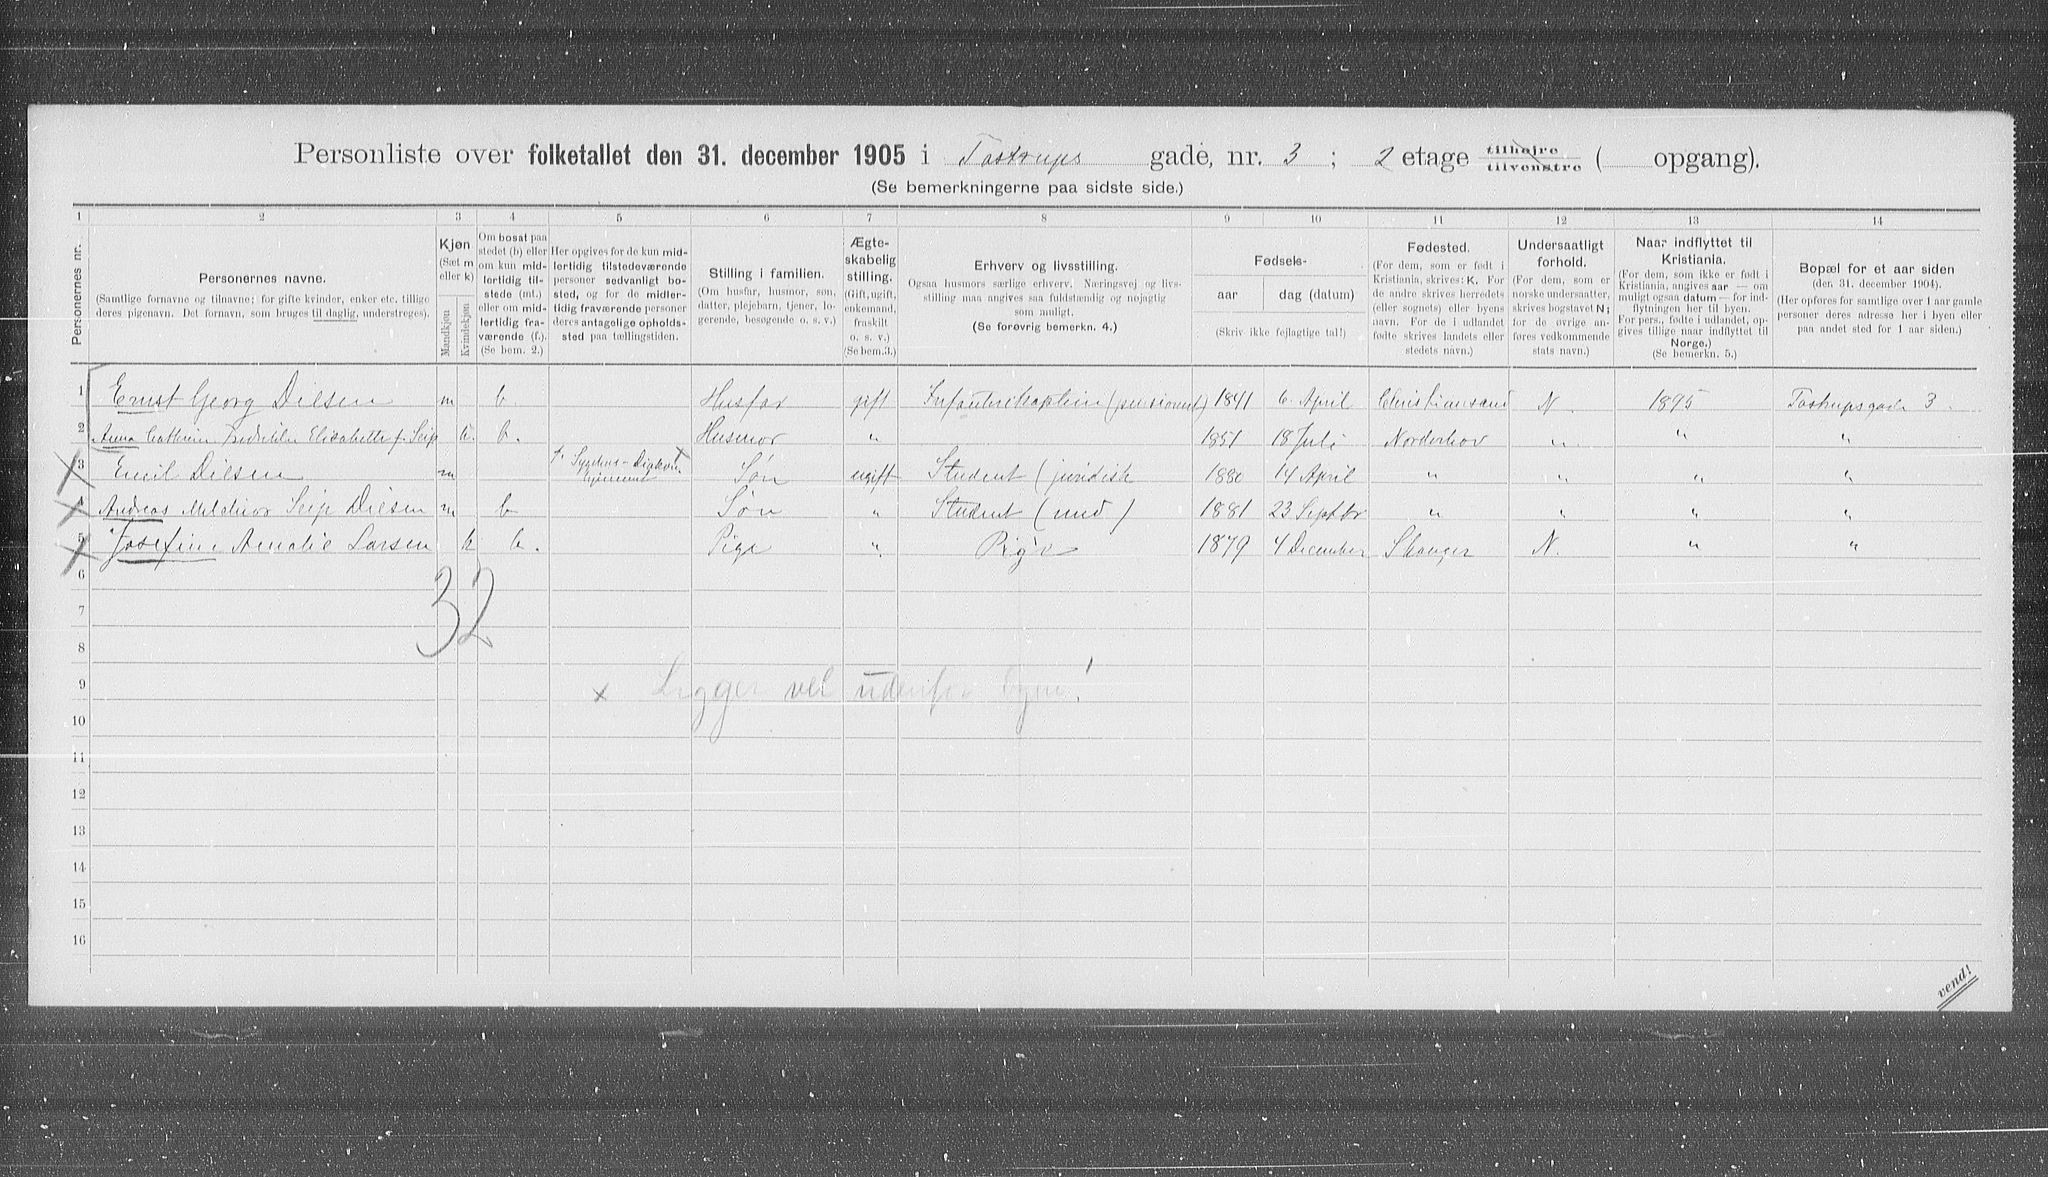 Personliste over folketallet den 31. december 1905 i Tostrups gade, nr. 3 ; 2 etage tilhøire tilvenstre ( opgang).
(Se bemerkningerne paa sidste side.)
1 2 3 4 5 6 7 8 9 10 11 12 13 14
Personernes nr.
Personernes navne.
(Samtlige fornavne og tilnavne; for gifte kvinder, enker etc. tillige deres pigenavn. Det fornavn, som bruges til daglig, understreges).
Kjøn
(Sæt m eller k)
Mandkjøn
Kvindekjøn
Om bosat paa stedet (b) eller om kun midlertidig tilstede (mt.) eller om midlertidig fraværende (f.).
(Se bem. 2.)
Her opgives for de kun midlertidig tilstedeværende personer sedvanligt bosted, og for de midlertidig fraværende personer deres antagelige opholdssted paa tællingstiden.
Stilling i familien.
(Om husfar, husmor, søn, datter, plejebarn, tjener, logerende, besøgende o. s. v.)
Ægteskabelig stilling.
(Gift, ugift, enkemand, fraskilt o. s. v.)
(Se bem.3.)
Erhverv og livsstilling.
Ogsaa husmors særlige erhverv. Næringsvej og livsstilling maa angives saa fuldstændig og nøjagtig som muligt.
(Se forøvrig bemerkn. 4.)
Fødsels-
aar
dag (datum)
(Skriv ikke fejlagtige tal!)
Fødested.
(For dem, som er født i Kristiania, skrives: K. For de andre skrives herredets (eller sognets) eller byens navn. For de i udlandet fødte skrives landets eller stedets navn.)
Undersaatligt forhold.
(For dem, som er norske undersaatter, skrives bogstavet N; for de øvrige anføres vedkommende stats navn.)
Naar indflyttet til Kristiania.
(For dem, som ikke er født i Kristiania, angives aar — om muligt ogsaa datum — for indflytningen her til byen. For pers., fødte i udlandet, opgives tillige naar indflyttet til Norge.)
(Se bemerkn. 5.)
Bopæl for et aar siden
(den 31. december 1904).
(Her opføres for samtlige over 1 aar gamle personer deres adresse her i byen eller paa andet sted for 1 aar siden.)
1 Ernst Georg Dilsen m b. Husfar gift Infanterikaptein (pensionert) 1841 6. April Christiansand N. 1895 Tostrupsgade 3.
2 Anna Cathrine Elisabeth f. Seip k. b. Husmor " 1851 18 Juli Norderhov " " "
3 Emil Dilsen m Søn ugift Student (juridisk 1880 14 April " " " "
4 Andreas Melchior Seip Dilsen m b Søn " Student (med) 1881 23 Septbr " " " "
5 Josefine Amalie Larsen k b. Pige " Pige 1879 4 December Skouger N. " "
6
32
7
8
9 x Ligger vel udenfor byen!
10
11
12
13
14
15
16
vend!